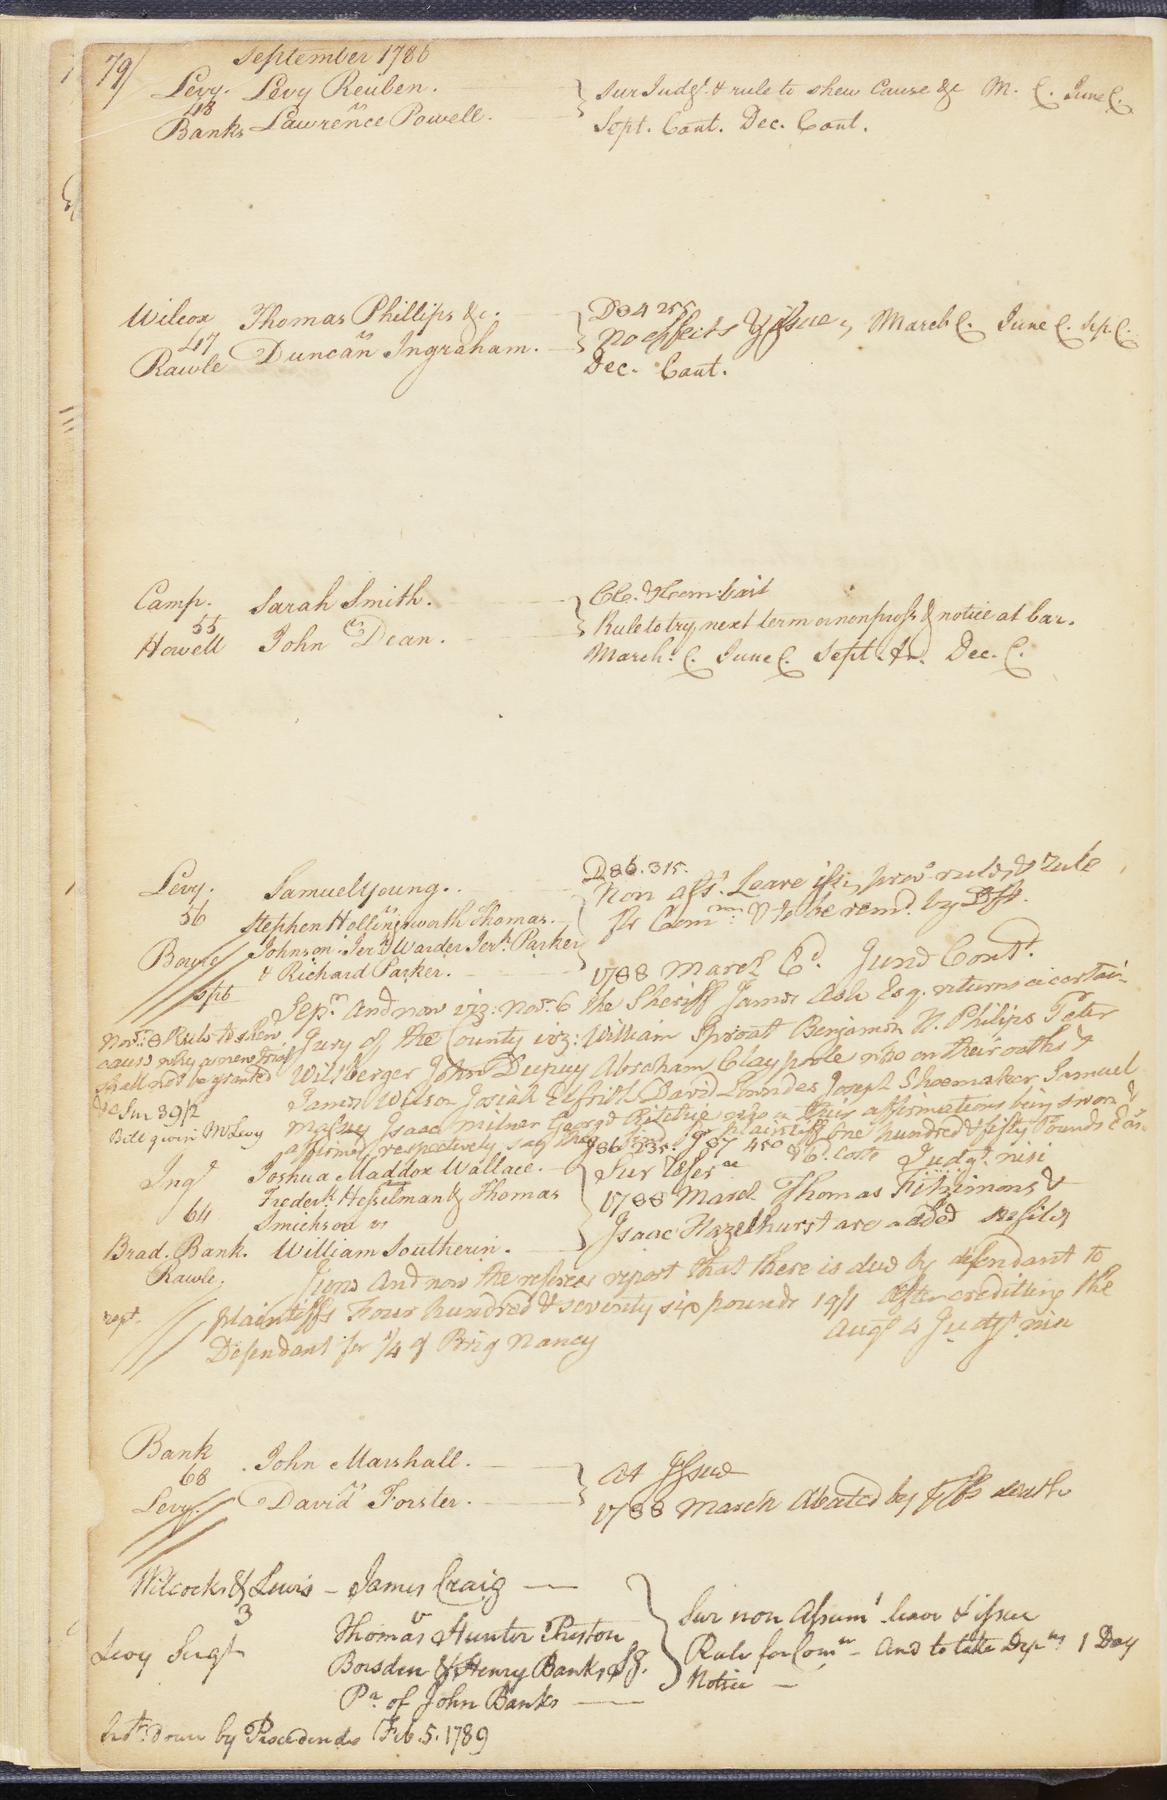 79/ September 1786
Levy. Levy Reuben. Sur Judgt. & rule to shew Cause &c M. C. June C.
43 vs
Banks Lawrence Powell. Sept. Cont. Dec. Cont.
Wilcox Thomas Phillips &c. D84 255
47 vs no effects & Issue, March C. June C. Sep. C.
Rawle Duncan Ingraham. Dec. Cont.
Camp. Sarah Smith. CC. & Com: bail
55 vs Rule to try next term or nonpross & notice at bar.
Howell John Dean. March. C. June C. Sept. Dec. C.
Levy. Samuel Young. D86. 315.
56 vs Non Asst. Leave issue, & rule
Stephen Hollingsworth Thomas for Comn. & to be remd. by Dft.
Johnson Jerh. Warder Jerh. Parker
& Richard Parker. 1788 March Cd. June Cont.
Sept
Sepr. And now viz: Novr. 6 the Sheriff James Ash Esq. returns a certain
Novr. 8 Rule to shew
cause why a new trial
shall not be granted
Jury of the County viz: William Sproat Benjamin W. Philips Peter
Wiltberger John Dupuy Abraham Claypoole who on their oaths &
James Wilson Josiah Elfrith David Lowndes Joseph Shoemaker Samuel
Sur 39/2
Bill given Mr Levy
Isaac Milner George Ritchie who on their affirmations being sworn &
affirmed respectively say they find for plaintiff One hundred & fifty Pounds
& 6d. Costs Judgt. nisi
J86. 235. J87 450
Ingl. Joshua Maddox Wallace. Sur Refer ce
Frederk. Hesselman & Thomas 1788 March Thomas Fitzsimons &
64 Smithson vs Isaac Hazelhurst are added
Brad. Bank. William Southerin.
Rawle. June And now the referees report that there is due by defendant to
rept. plaintiffs Four hundred & seventy six pounds 19/1 after crediting the
Defendant for 1/4 of Brig Nancy Augt 4 Judgt nisi
Bank John Marshall. At Issue
68 vs
Levy. David Forster. 1788 March Abated by death
Wilcocks & Lewis – James Craig —
3 vs Sur non Assumt leave & issue
Levy Sergt Thomas Hunter Preston Rule for Comn – And to take Depns 1 Day
Bowsden & Henry Banks Notice –
of John Banks —
by Procedendo Feb. 5. 1789